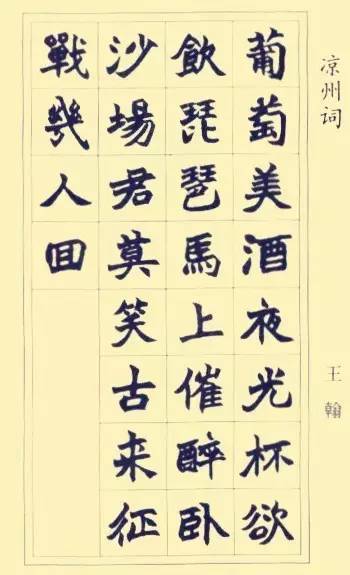 凉州词
王翰
葡萄美酒夜光杯欲
飲琵琶馬上催醉臥
沙場君莫笑古来征
戰幾人回